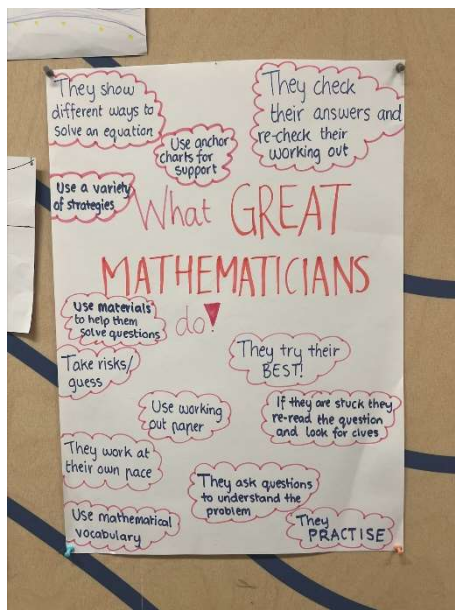 They show
different ways to
solve an equation
They check
their answers and
re-check their
working out
Use anchor
charts for
support
Use a variety
of strategies
What GREAT
MATHEMATICIANS
do!
Use materials
to help them
solve questions
They try their
BEST!
Take risks/
guess
Use working
out paper
If they are stuck they
re-read the question
and look for clues
They work at
their own pace
They ask questions
to understand the
problem
Use mathematical
vocabulary
They
PRACTISE